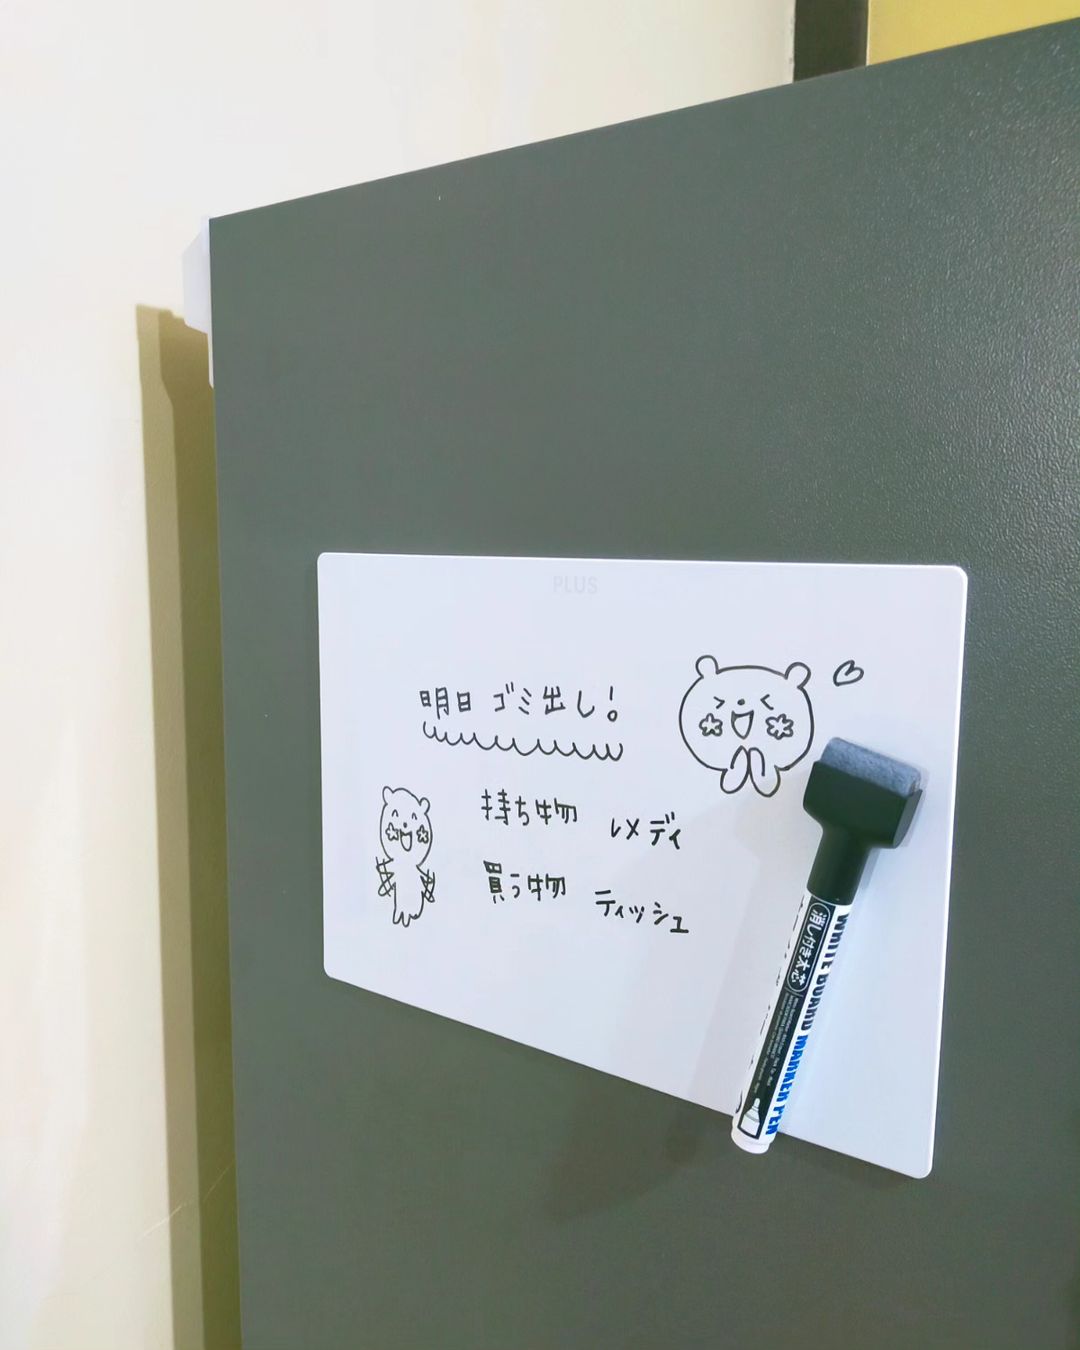 PLUS
明日 ゴミ出し!
持ち物 レメディ
買う物 ティッシュ
消し付き太芯
WHITE BOARD MARKER PEN